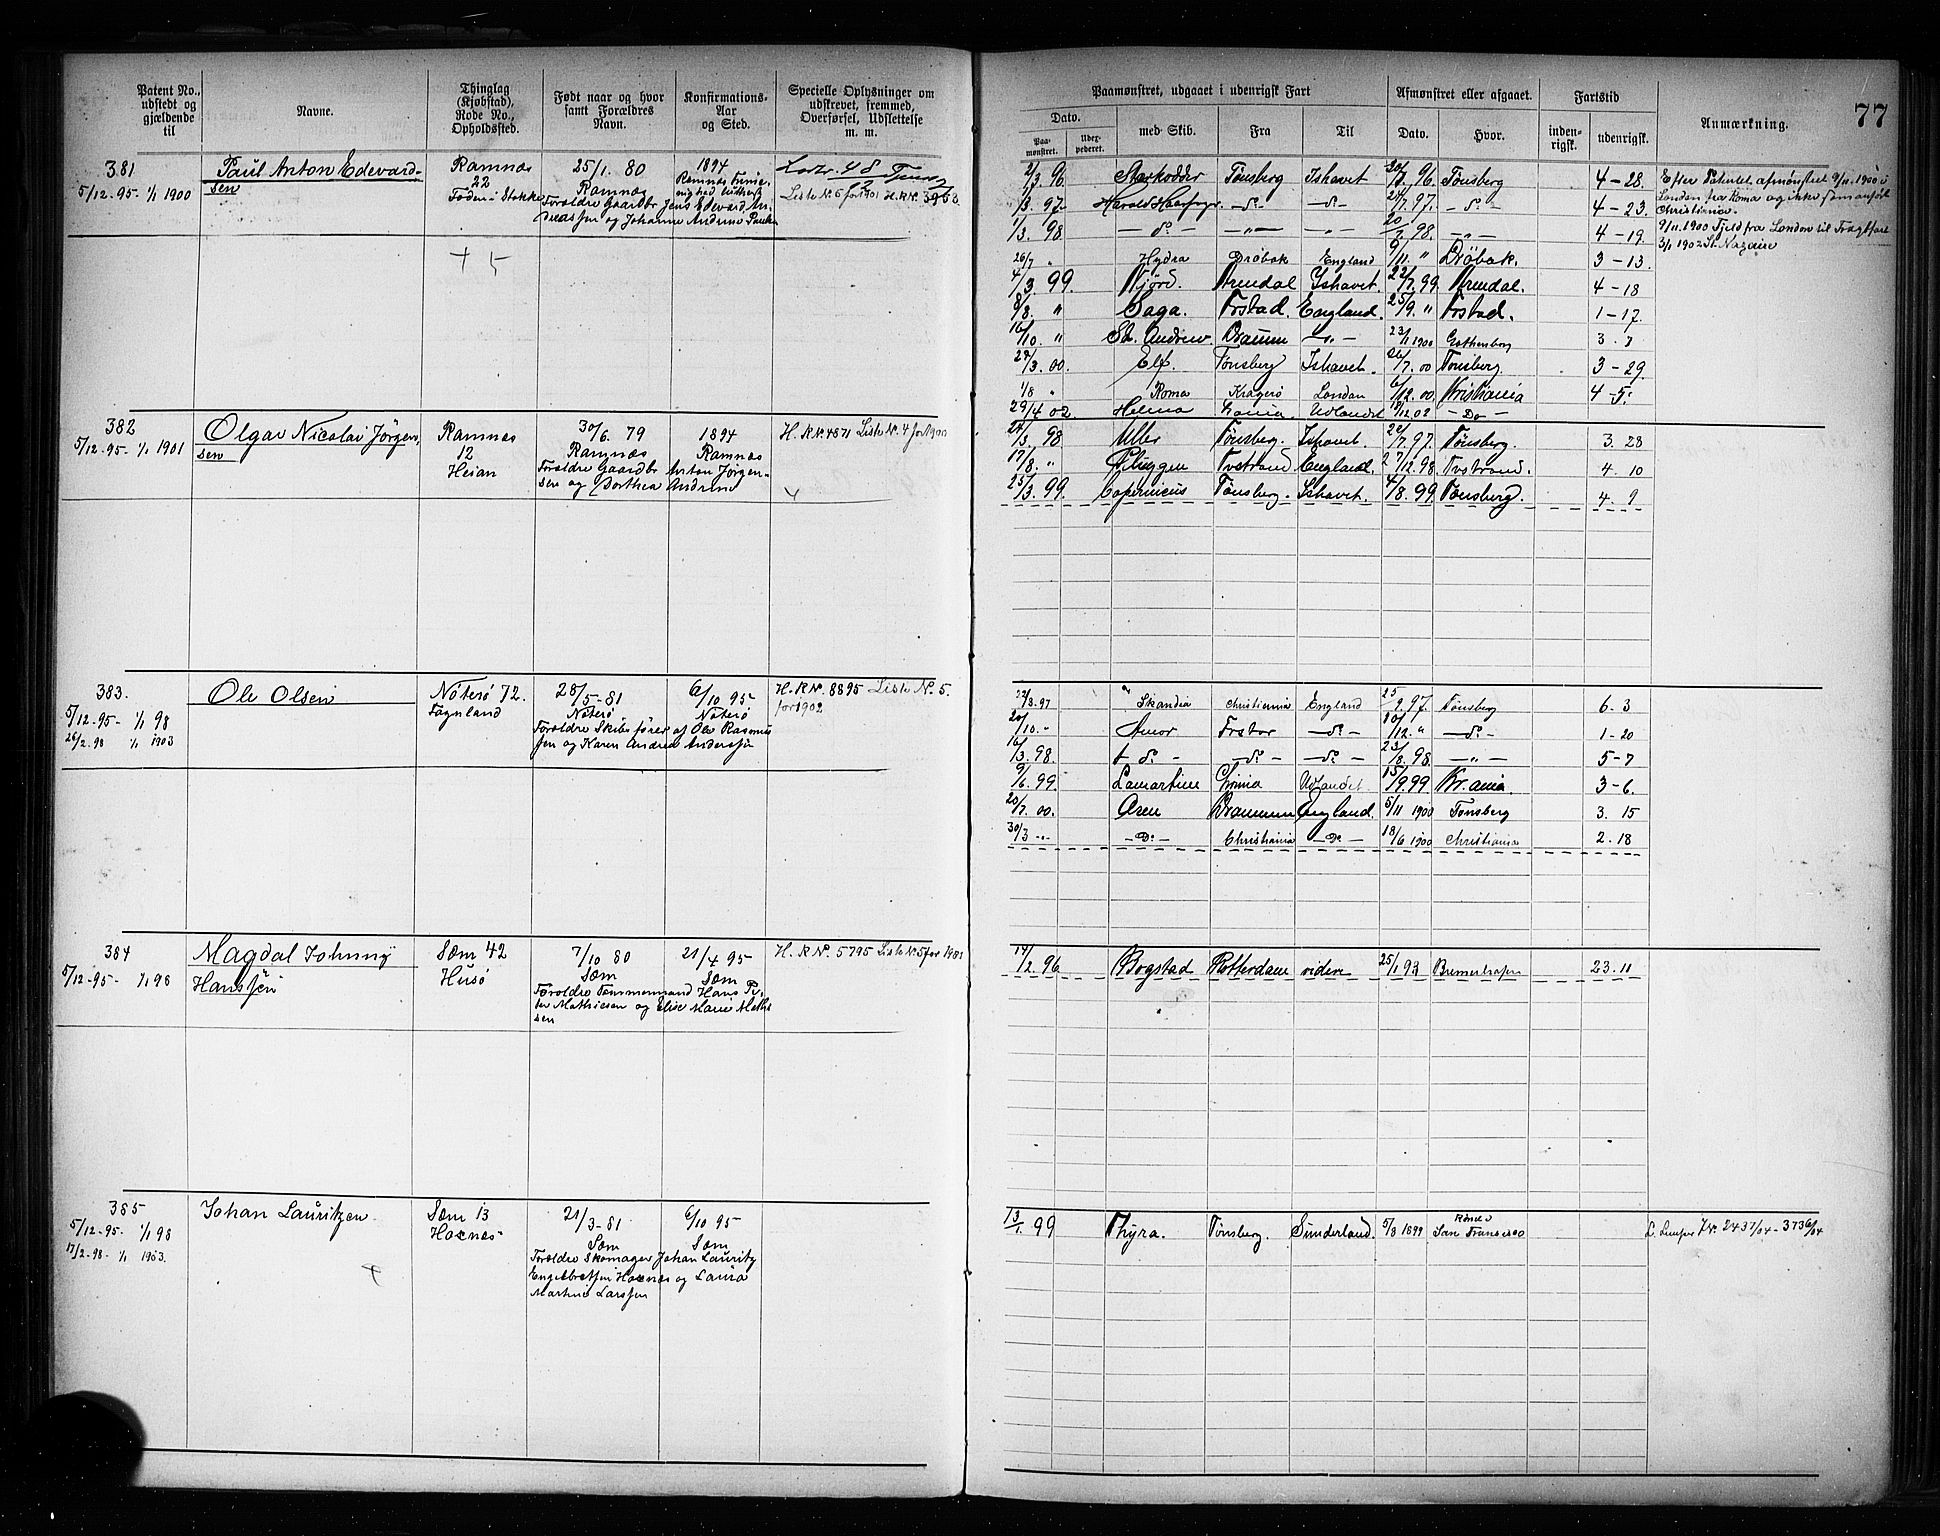 77
Patent No., udstedt og gjældende til
Navne.
Thinglag (Kjøbstad), Rode No., Opholdssted.
Født naar og hvor samt Forældres Navn.
Konfirmations-Aar og Sted.
Specielle Oplysninger om udskrevet, fremmed, Overførsel, Udslettelse m. m.
Paamønstret, udgaaet i udenrigsk Fart
Dato.
Paa-mønstret.
Udex-pederet.
med Skib.
Fra
Til
Afmønstret eller afgaaet.
Dato.
Hvor.
Fartstid
inden-rigsk.
udenrigsk.
Anmærkning.
381
5/12. 95. 1/1 1900
Paul Anton Edevard-
sen
Ramnæs
22
25/1. 80
Ramnæs
Forældre Gaardbr Jens Edevard An-
dreassen og Johanne Andrine
1894
Ramnæs
Liste No 5 for 1901 H.R.No.
+ 5
2/3. 96. Starkodder Tønsberg Ishavet 96. Tønsberg 4-28.
1/3. 97. Harald Haarfagr. -do- -do- 97. -do- 4-23.
1/3. 98. -do- -"- -"- 98. -"- 4-19.
26/7 " Hydra Drøbak England 9/11. " Drøbak. 3-13.
4/3. 99. Njørd. Arendal Ishavet. 22/7. 99. Arendal. 4-18
8/8. " Saga. Frstad. England. 25/9. " Frstad. 1-17.
16/10. " St. Andrew. Dramm -"- 23/1 1900 Gothenborg 3. 7
27/3. 00. Elf. Tønsberg Ishavet. 26/7. 00 Tønsberg. 3-29.
1/8 " Roma Kragerø London 6/12. 00. Kristiania 4-5.
29/4 02. Helma Udlandet 9/12 02 -Do-
Efter Patentet afmønstret 9/11. 1900 i
London fra Roma og ikke som anført
Christiania.
9/11. 1900 Fjeld fra London til Fragtfart
3/1 1902 St. Nazaire
382
5/12. 95. 1/1 1901
Olgar Nicolai Jörgen-
sen
Ramnæs
12
Heian
30/6. 79
Ramnæs
Forældre Gaardbr Anton Jørgen-
sen og Dorthea Andrine
1894
Ramnæs
H.R.No. 4871 Liste No. 4 for 1901
98 Uller Tønsberg. Ishavet. 22/7. 97. Tønsberg. 3. 28
17/8. " Tvstrand England. 27/12. 98. Tvstrand. 4. 10
25/3. 99. Copernicus Tønsberg. Ishavet. 4/8. 99 Tønsberg. 4. 9
383.
5/12. 95. 1/1 98
26/2. 98 1/1 1903
Ole Olsen
Nøterø 72.
Fagnland
28/5-81
Nøterø
Forældre Skibsfører af Ole Rasmus
sen og Karen Andrea Anderssen
6/10 95
Nøterø
H.R.No. 8895 Liste No. 5.
for 1902
27/3. 97 Skandia Christiania England 25/9. 97. Tønsberg 6. 3
20/10. " Amor Frstad -do- 10/12. " -do- 1-20
16/3. 98. -do- -do- -do- 23/8. 98. -"- 5-7
9/6. 99. Lamartine Udlandet 15/9. 99 Kr. ania. 3-6.
20/7. 00. Aren Drammen England. 5/11 1900 Tønsberg 3. 15
30/3 -"- -Do- Christiania -Do- 18/6 1900 Christiania 2. 18
384
5/12. 95. 1/1 98
Magdal Johnny
Hanssen
Sæm 42
Husø
7/10 80
Sæm
Forældre Tømmermand Hans Pe-
ter Mathiesen og Elise Marie Mathi
sen
21/4 95
Sæm
H.R.No. 5795 Liste No. 5 for 1901
14/2. 96 Bogstad Rotterdam videre 25/1 98 Bremerhafen 23. 11
385
5/12. 95. 1/1 98
17/2. 98. 1/1 1903.
Johan Lauritzen
Sæm 13
Hoknæs
21/3-81
Sæm
Forældre Skomager Johan Lauritz
Engelbretsen Hoknæs og Laura
Martine Larssen
6/10 95
Sæm
13/1. 99 Thyra. Tønsberg. Sunderland. 5/8 1899 Rømte San Francisco